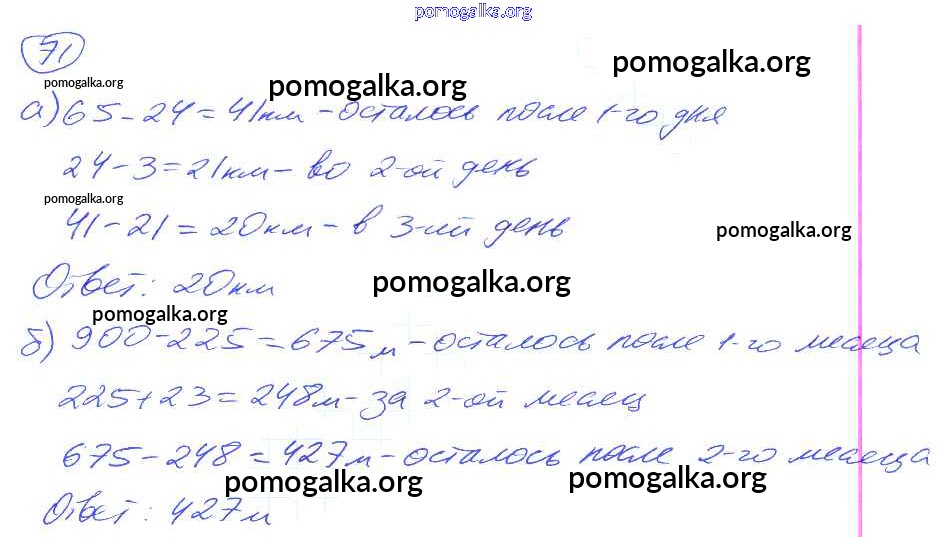 pomogalka.org
71
pomogalka.org
pomogalka.org
pomogalka.org
а) 65 - 24 = 41км - осталось после 1-го дня
24 - 3 = 21км - во 2-ой день
pomogalka.org
41 - 21 = 20км - в 3-ий день
pomogalka.org
Ответ: 20км
pomogalka.org
pomogalka.org
б) 900 - 225 = 675м - осталось после 1-го месяца
225 + 23 = 248м - за 2-ой месяц
675 - 248 = 427м - осталось после 2-го месяца
pomogalka.org
pomogalka.org
Ответ: 427м